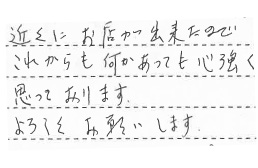 近くに お店が出来たので
これからも何かあっても心強く
思っております。
よろしくお願いします。